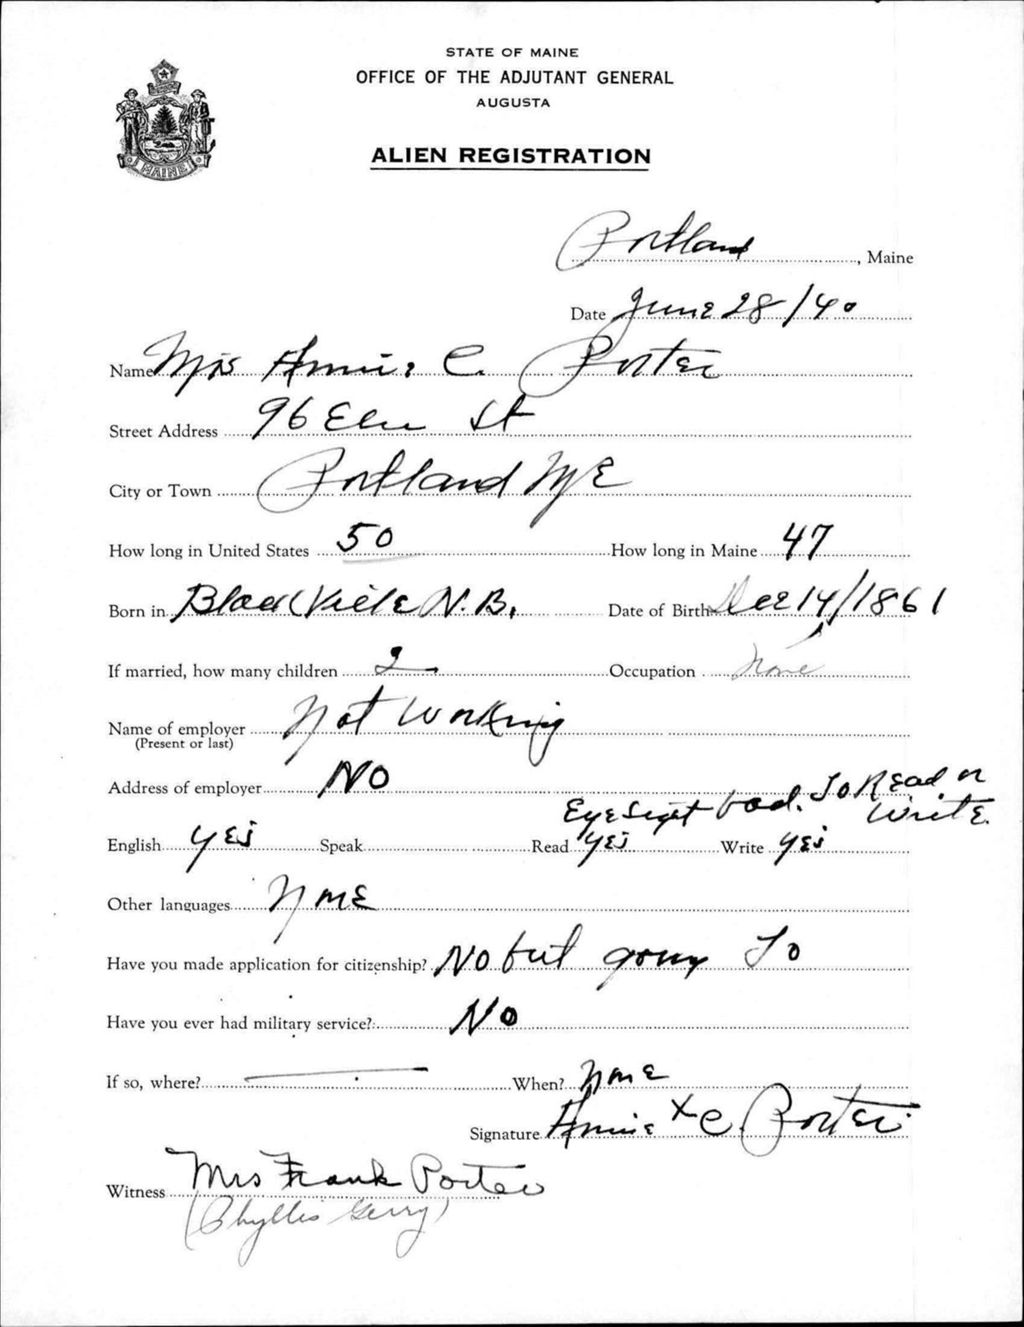 STATE OF MAINE
OFFICE OF THE ADJUTANT GENERAL
AUGUSTA
ALIEN REGISTRATION
MAINE
Portland, Maine
Date June 28/40
Name Mrs Annie C. Porter
Street Address 96 Elm St
City or Town Portland ME
How long in United States 50 How long in Maine 47
Born in Blackville N.B. Date of Birth Dec 14/1861
If married, how many children 2 Occupation None
Name of employer Not Working
(Present or last)
Address of employer NO
Eye Sight bad. To Read or Write.
English Yes Speak Read Yes Write Yes
Other languages None
Have you made application for citizenship? No but going To
Have you ever had military service? No
If so, where? When? None
Signature Annie X C. Porter
Witness Mrs Frank Porter
(Phyllis Gerry)